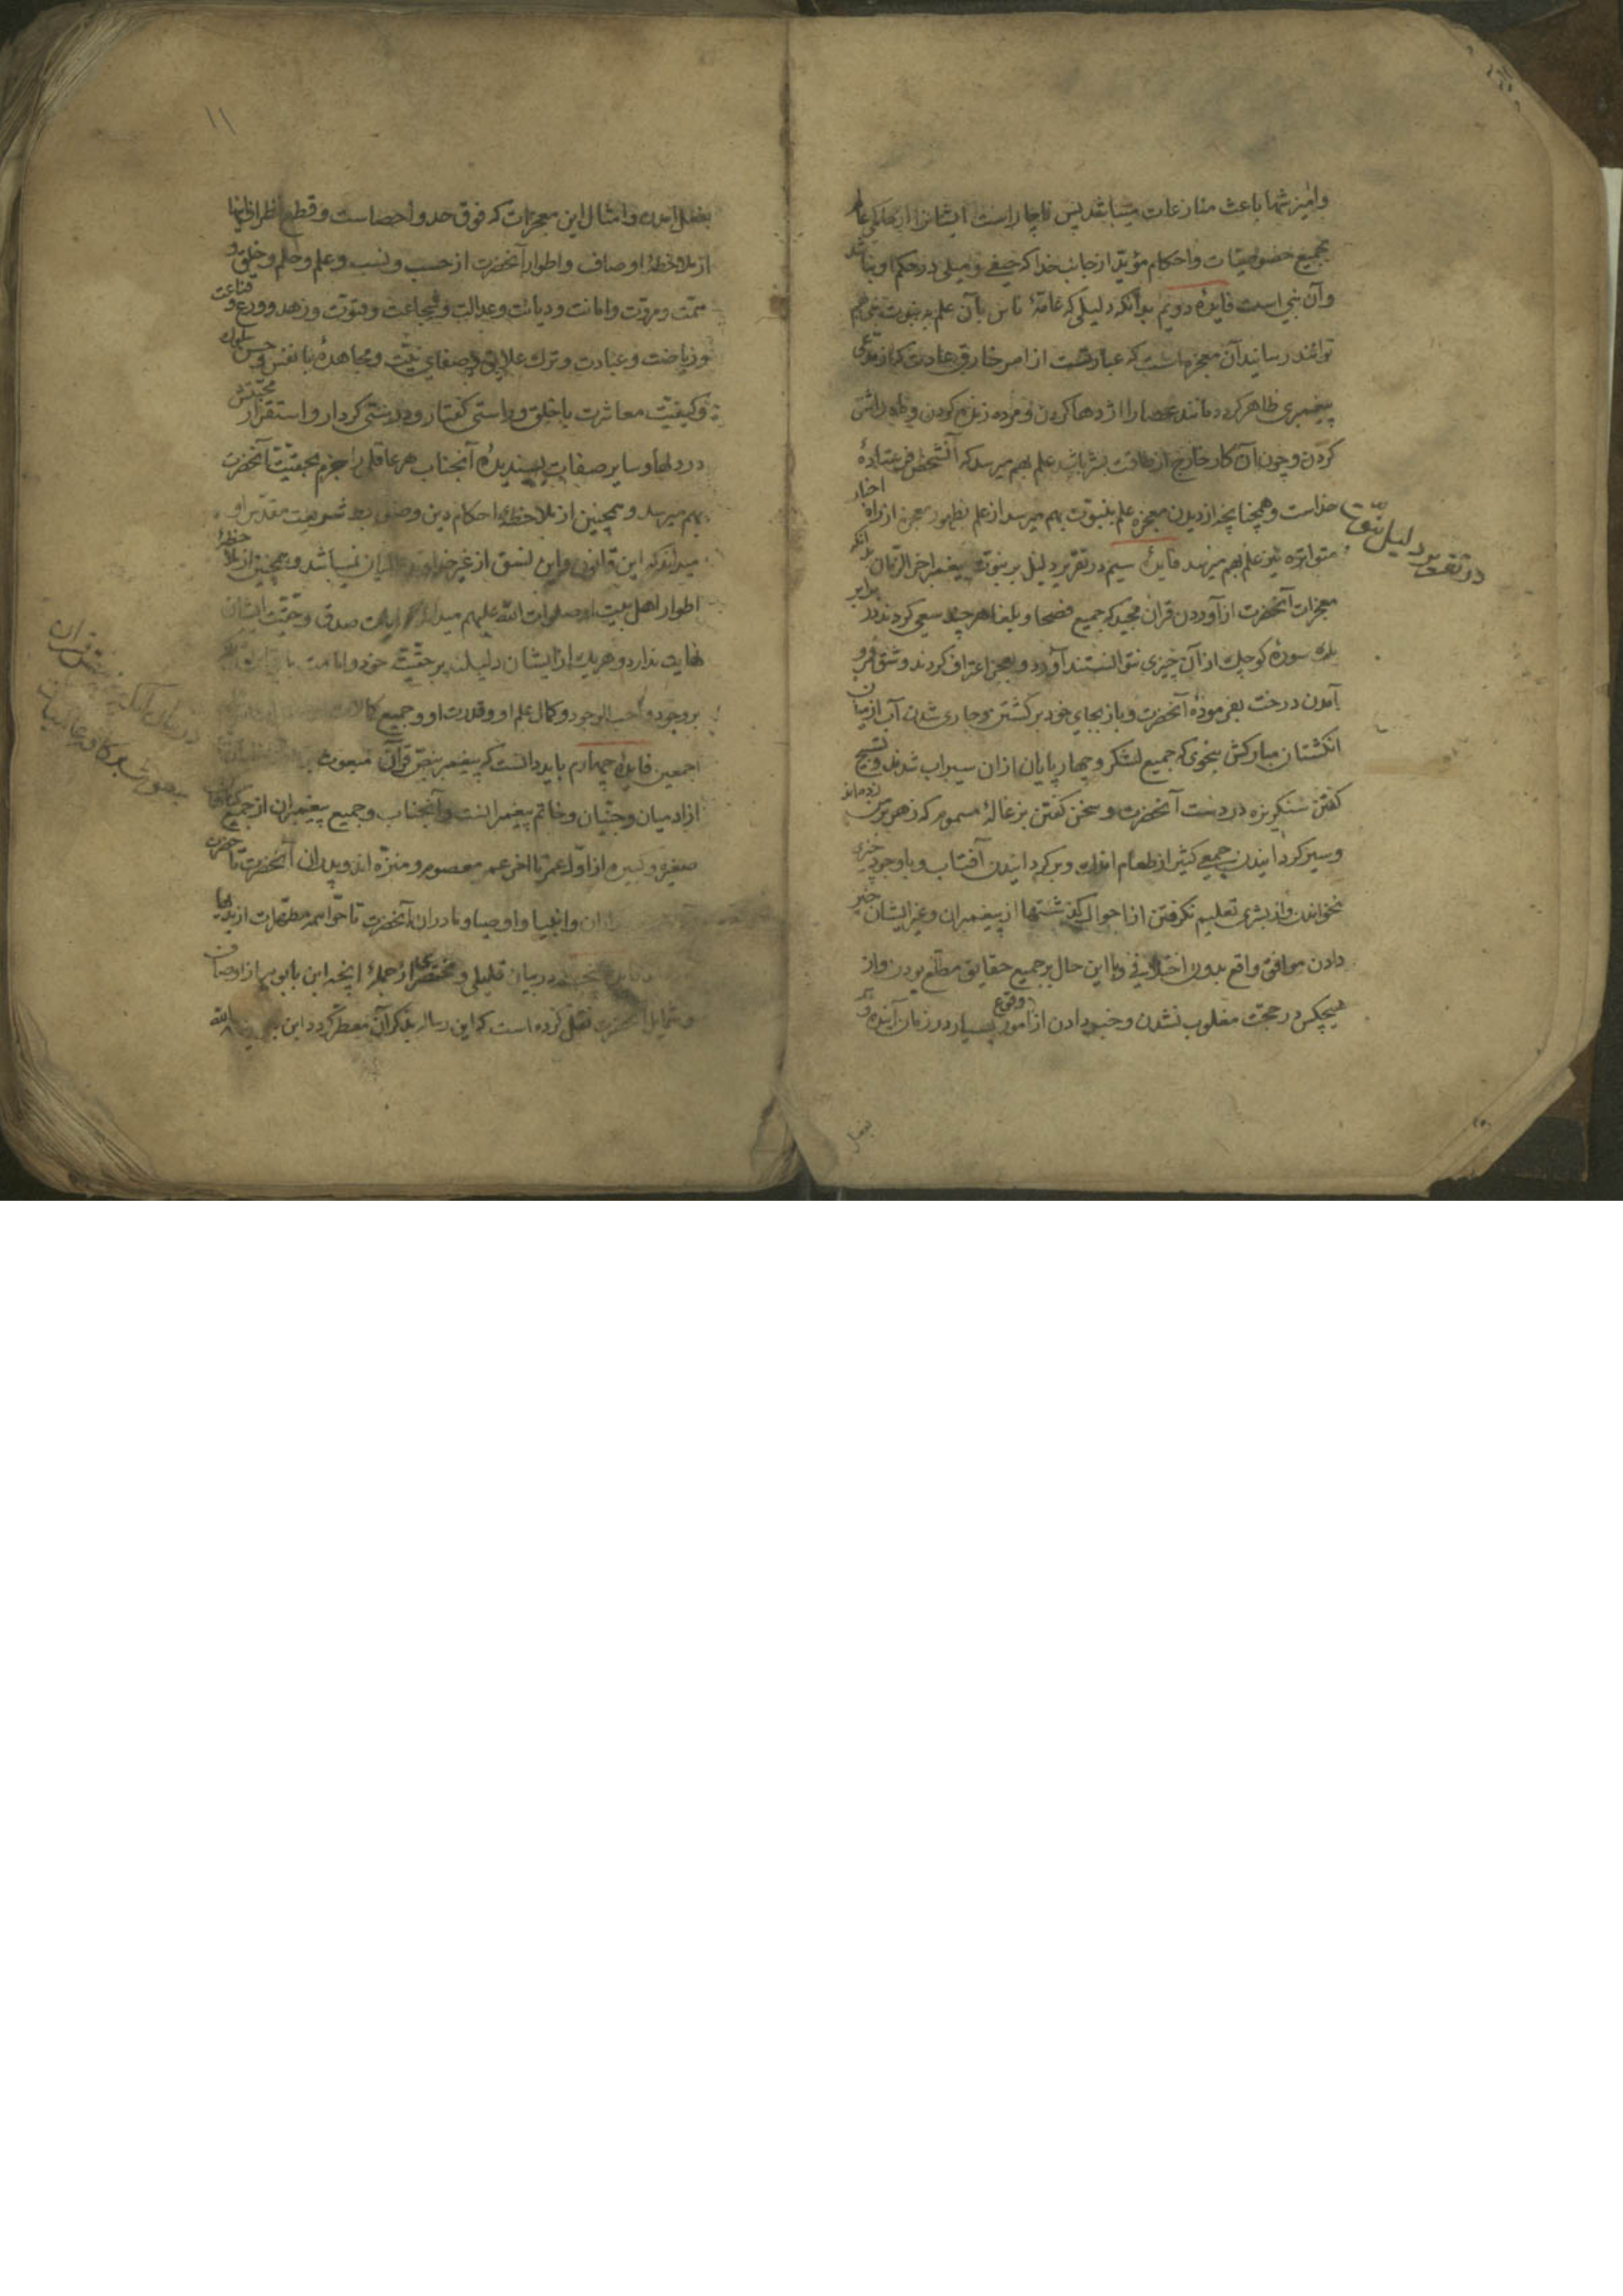 وامیزش شما باعث منازعات میباشد پس ناچار است ایشانرا از حاکمی عالم
بجمیع خصوصیات واحکام مؤید از جانب خدا که حیفی و میلی در حکم او نباشد
وآن نبی است فایدهٔ دویم بدآنکه دلیلی که عامهٔ ناس بآن علم به نبوت نبی هم
توانند رسانید آن معجزه است که عبارتست از امر خارق عادت که از مدعی
پیغمبری ظاهر گردد مانند عصا را اژدها کردن ومرده زنده کردن و
کردن وچون آن کار خارج از طاقت بشر باشد علم بهم میرسد که آنشخص فرستادهٔ
خداست وهمچنانچه از دیدن معجزه علم بنبوت بهم میرسد از علم بظهور معجزه از راه اخبار
متواتره نیز علم بهم میرسد فایدهٔ سیم در تقریر دلیل بر نبوت پیغمبر اخر الزمان بدانکه
معجزات آنحضرت از آوردن قران مجید که جمیع فصحا وبلغا هر چند سعی کردند در برابر
یک سورهٔ کوچک از آن چیزی نتوانستند آورد وبعجز اعتراف کردند وشق قمر و
آمدن درخت بفرمودهٔ آنحضرت وباز بجای خود برگشتن وجاری شدن آب از میان
انگشتان مبارکش بنحوی که جمیع لشکر وچهارپایان ازان سیراب شدند وتسبیح
گفتن سنگریزه در دست آنحضرت وسخن گفتن بزغالهٔ مسموم که زهر برآن زده بودند
وسیر گردانیدن جمعی کثیر از طعام اندک وبرگردانیدن آفتاب وباوجود چیزی
نخواندن واز بشری تعلیم نگرفتن از احوال گذشتها از پیغمبران وغیر ایشان خبر
دادن موافق واقع بدون اختلافی وبا این حال بر جمیع حقایق مطلع بودن واز
هیچکس در حجت مغلوب نشدن وخبر دادن از وقوع امور بسیار در زمان آینده و
در تقریر دلیل نبوت
بفعل
۱۱
بفعل آمدن وامثال این معجزات که فوق حد واحصاست وقطع نظر از اینها
از ملاحظهٔ اوصاف واطوار آنحضرت از حسب ونسب وعلم وحلم وخلق و
همت ومروت وامانت ودیانت وعدالت وشجاعت وفتوت وزهد وورع وقناعت
وریاضت وعبادت وترک علایق وصفای نیت ومجاهدهٔ با نفس وحسن سلوک
وکیفیت معاشرت با خلق وراستی گفتار ودرستی کردار واستقرار محبتش
در دلها وسایر صفات پسندیدهٔ آنجناب هر عاقلی را جزم بحقیت آنحضرت
بهم میرسد وهمچنین از ملاحظهٔ احکام دین وضوابط شریعت مقدس او
میداند که این قانون واین نسق از غیر خداوند نمیباشد وهمچنین از ملاحظهٔ
اطوار اهل بیت او صلوات الله علیهم میداند صدق وحقیت ایشان
نهایت ندارد وهریک از ایشان دلیلند بر حقیت خود وامامت
بر وجود واجب الوجود وکمال علم او وقدرت او وجمیع کمالات
اجمعین فایدهٔ چهارم باید دانست که پیغمبر بنص قرآن مبعوث
از ادمیان وجنیان وخاتم پیغمبرانست وآنجناب وجمیع پیغمبران از جمیع گناهان
صغیره وکبیره از اول عمر تا اخر عمر معصوم ومنزه اند وپدران آنحضرت تا حضرت
وانبیا واوصیا ومادران آنحضرت تا حوا همه مطهرات از بدیها
در بیان قلیلی ومختصری از جملهٔ آنچه ابن بابویه از اوصاف
وشمایل آنحضرت نقل کرده است که این رساله بذکر آن معطر گردد ابن